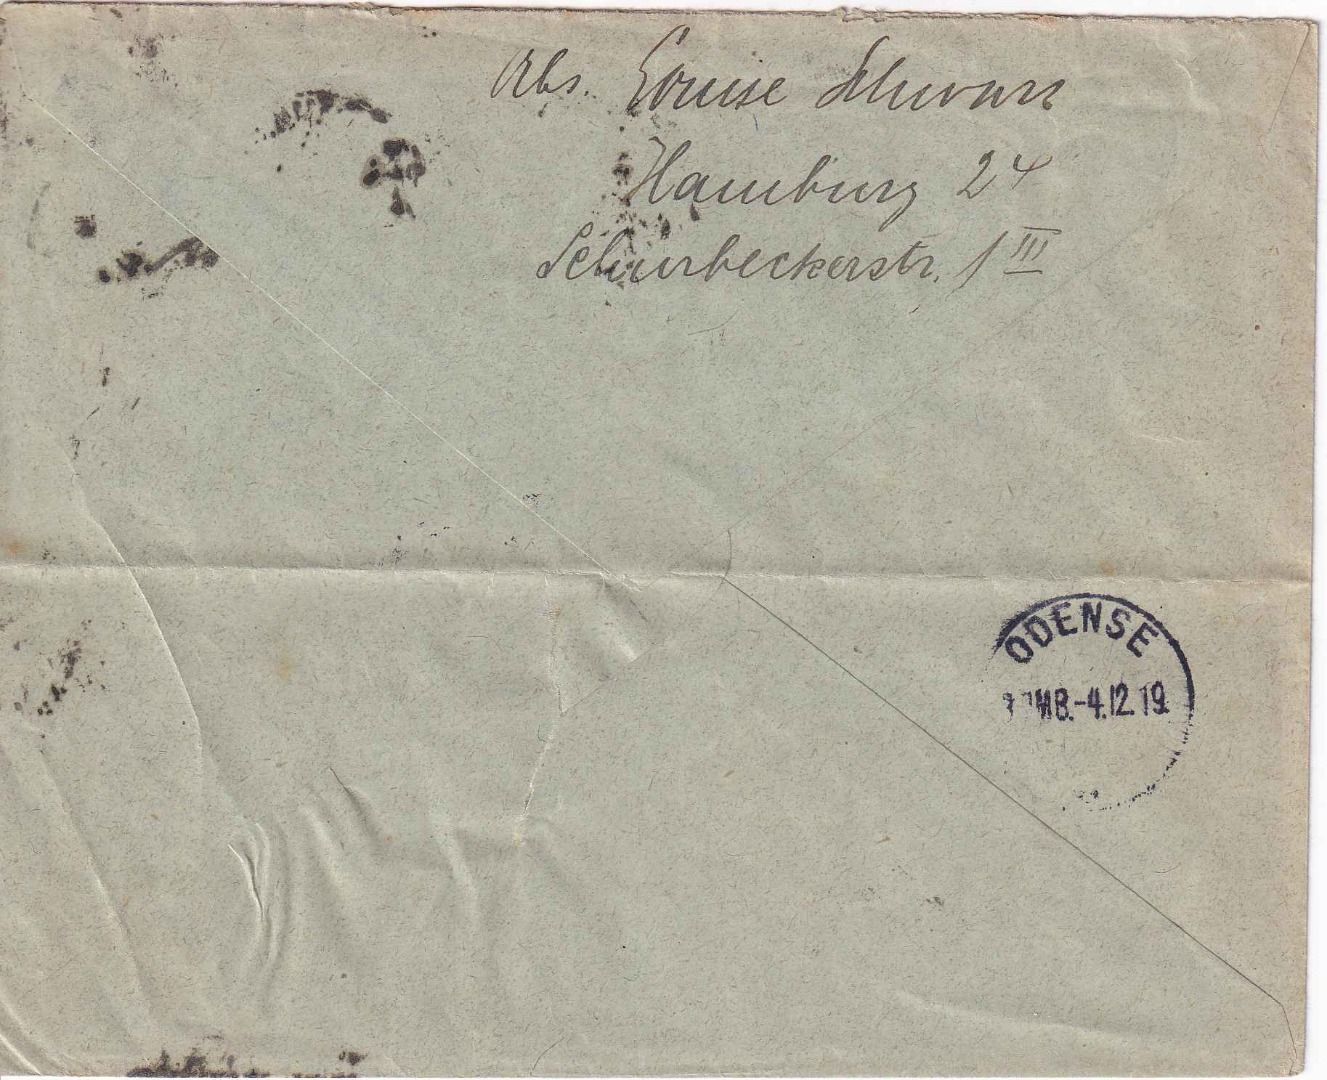 Abs. Louise Schwarz
Hamburg 24
Schürbeckerstr. 1 III
ODENSE
OMB.-4.12.19.